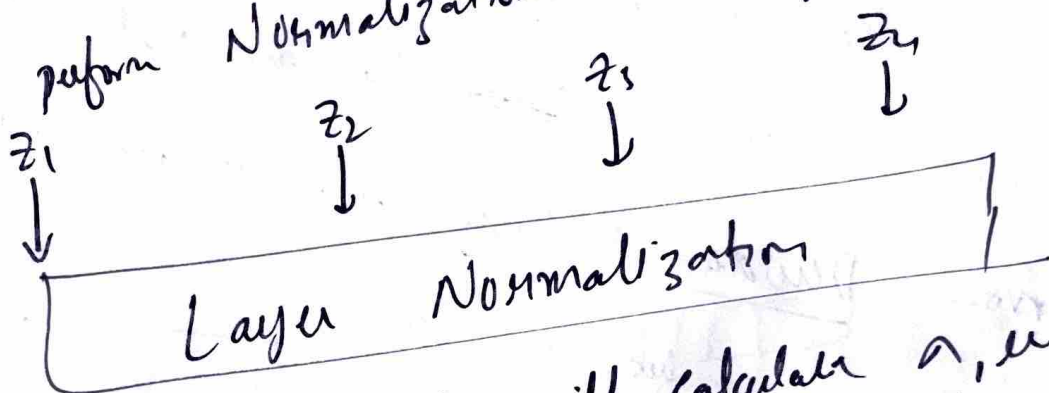 perform Normalization
z1 z2 z3 z4
Layer Normalization
calculate